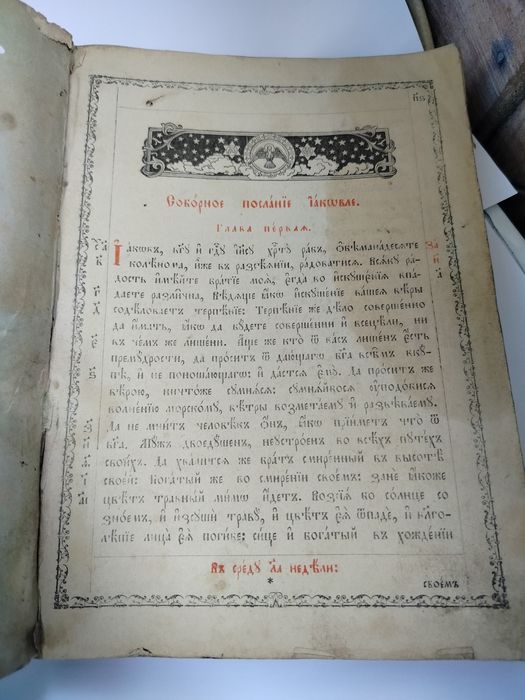 Собо́рное посла́нїе і҆а́кѡвле.
Глава̀ пе́рваѧ.
І҆а́кѡвъ, бг҃ꙋ и҆ гдⷭ҇ꙋ і҆и҃сꙋ хрⷭ҇тꙋ̀ ра́бъ, ѻ҆бѣмана́десѧте
колѣ́нома, и҆̀же въ разсѣ́ѧнїи, ра́доватисѧ. Всѧ́кꙋ ра́
дость и҆мѣ́йте бра́тїе моѧ̑, є҆гда̀ во и҆скꙋшє́нїѧ впа́
даете разли̑чна, Вѣ́дѧще ꙗ҆́кѡ и҆скꙋше́нїе ва́шеѧ вѣ́ры
содѣ́ловаетъ терпѣ́нїе: Терпѣ́нїе же дѣ́ло соверше́нно
да и҆́мать, ꙗ҆́кѡ да бꙋ́дете соверше́нни и҆ всецѣ́ли, ни
въ че́мъ же лише́ни. А҆́ще же кто̀ ѿ ва́съ лише́нъ є҆́сть
премꙋ́дрости, да про́ситъ ѿ даю́щагѡ бг҃а всѣ̑мъ вкꙋ́
пѣ, и҆ не поноша́ющагѡ: и҆ да́стсѧ є҆мꙋ̀. Да про́ситъ же
вѣ́рою, ничто́же сꙋмнѧ́сѧ: сꙋмнѧ́йбосѧ ᲂу҆подо́бисѧ
волне́нїю морско́мꙋ, вѣ̑тры возмета́емꙋ и҆ развѣва́емꙋ.
Да не мни́тъ человѣ́къ ѻ҆́нъ, ꙗ҆́кѡ прїи́метъ что̀ ѿ
бг҃а. Мꙋ́жъ двоедꙋ́шенъ, неꙋстро́енъ во всѣ́хъ пꙋте́хъ
свои́хъ. Да хва́литсѧ же бра́тъ смире́нный въ высотѣ̀
свое́й: Бога́тый же во смире́нїи свое́мъ: занѐ ꙗ҆́коже
цвѣ́тъ тра́вный ми́мѡ и҆́детъ. Возсїѧ́ бо со́лнце со
зно́емъ, и҆ и҆зсꙋшѝ травꙋ̀, и҆ цвѣ́тъ є҆ѧ̀ ѿпадѐ, и҆ бл҃го
лѣ́пїе лица̀ є҆ѧ̀ поги́бе: си́це и҆ бога́тый въ хожде́нїи
Въ сре́дꙋ л҃а недѣ́ли:
*
свое́мъ